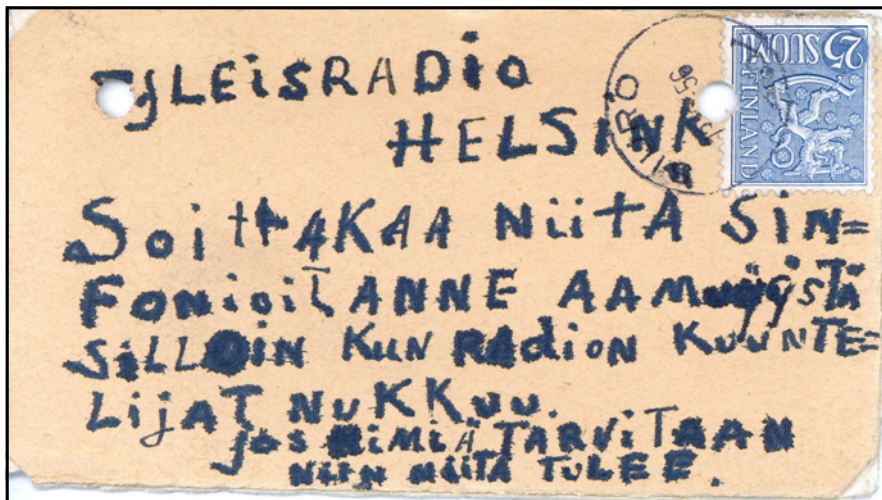 yLEiSRADio
HELSINK
SoittAKAA NiitÄ SiN=
FONioitANNE AAMuyöSTÄ
SiLLOiN KuN RADioN KuuNTE=
LijAT NuKKuu.
joS NiMiÄ TARViTAAN
NiiN NiiTÄ TuLEE.
25 SUOMI
FINLAND